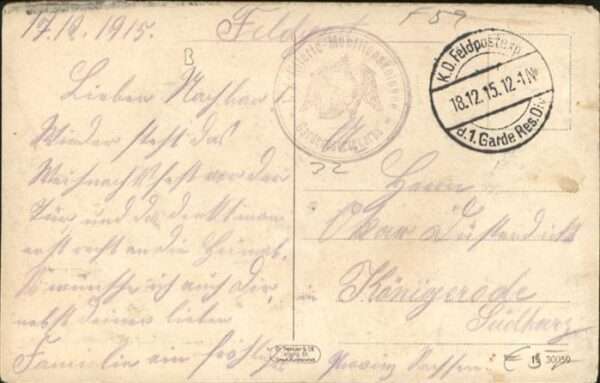 17.12.1915.
Feldpost
F 59
B
Lieber Nachbar!
Wieder steht das
Weihnachtsfest vor der
Tür, und da denkt man
erst recht an die Heimat.
So wünsche ich auch Dir,
nebst deiner lieben
Familie ein fröhliches
Munitionskolonne
Gardekorps
K.D. Feldpostexp.
18.12.15.12-1N
d.1. Garde Res. Div.
32
Herrn
Oskar
in Königerode
Südharz
Provinz Sachsen
30050